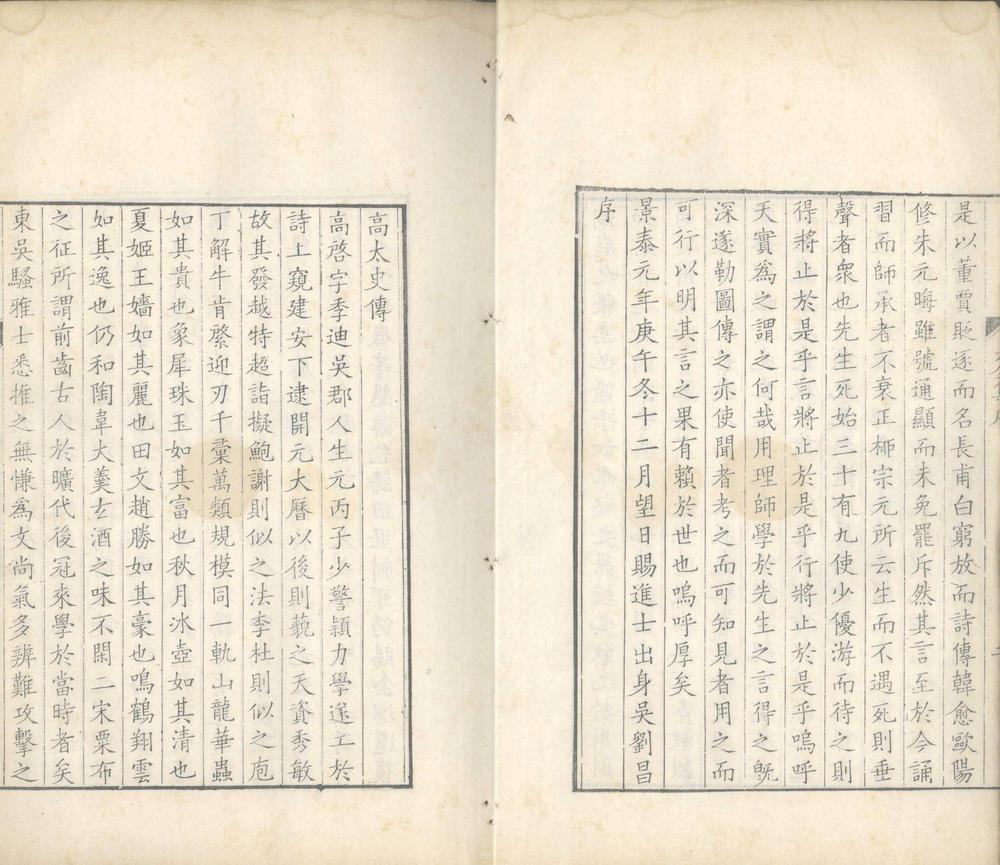 是以董賈貶逐而名長甫白窮放而詩傳韓愈歐陽
修朱元晦雖號通顯而未免罷斥然其言至於今誦
習而師承者不衰正柳宗元所云生而不遇死則垂
聲者衆也先生死始三十有九使少優游而待之則
得將止於是乎言將止於是乎行將止於是乎嗚呼
天實爲之謂之何哉用理師學於先生之言得之旣
深遂勒圖傳之亦使聞者考之而可知見者用之而
可行以明其言之果有賴於世也嗚呼厚矣
景泰元年庚午冬十二月望日賜進士出身吳劉昌
序
高太史傳
高啓字季迪吳郡人生元丙子少警頴力學遂工於
詩上窺建安下逮開元大曆以後則藐之天資秀敏
故其發越特超詣擬鮑謝則似之法李杜則似之庖
丁解牛肯綮迎刃千彙萬類規模同一軌山龍華蟲
如其貴也象犀珠玉如其富也秋月冰壺如其清也
夏姬王嬙如其麗也田文趙勝如其豪也鳴鶴翔雲
如其逸也仍和陶韋大羹玄酒之味不閑二宋粟布
之征所謂前齒古人於曠代後冠來學於當時者矣
東吳騷雅士悉推之無慊爲文尚氣多辨難攻擊之